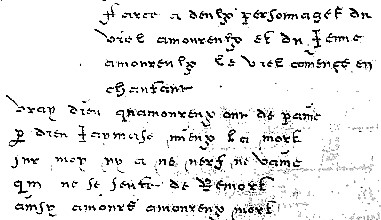 Farce a deulx personnages du
viel amoureulx et du Jeune
amoureulx Le viel comence en
chantant
vray dieu qu amoureux ont de paine
Jaymasse mieux la mort
sur moy ny a ne nerf ne vaine
qui ne se sente de Remort
ainsy amours amoureux mort